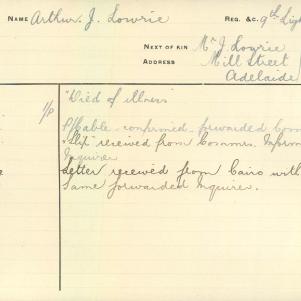 NAME Arthur. J. Lowrie REG. &C. 9th Lig
NEXT OF KIN Mr J. Lowrie
ADDRESS Mill Street
Adelaide
I/P "Died of illness"
P/Cable - confirmed - forwarded Com
"Slip" received from Commrs. Inform
Inquirer
Letter received from Cairo with
Same forwarded Inquirer.